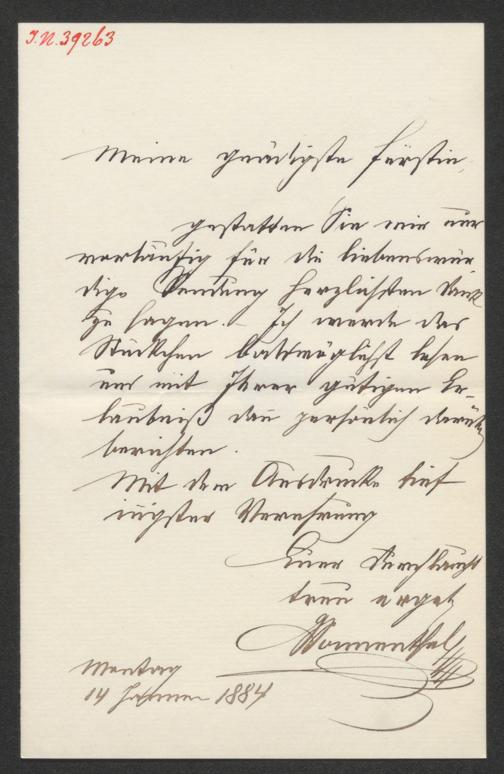 I.N. 39263
Meine gnädigste Fürstin,
gestatten Sie mir nur
vorläufig für die liebenswür
dige Sendung herzlichsten Dank
zu sagen. – Ich werde das
Stückchen baldmöglichst lesen
und mit Ihrer gütigen Er-
laubniß dan persönlich darüber
berichten.
Mit dem Ausdrucke tief
innigster Verehrung
Euer Durchlaucht
treu ergeb
Sonnenthal
Montag
14 Januar 1884